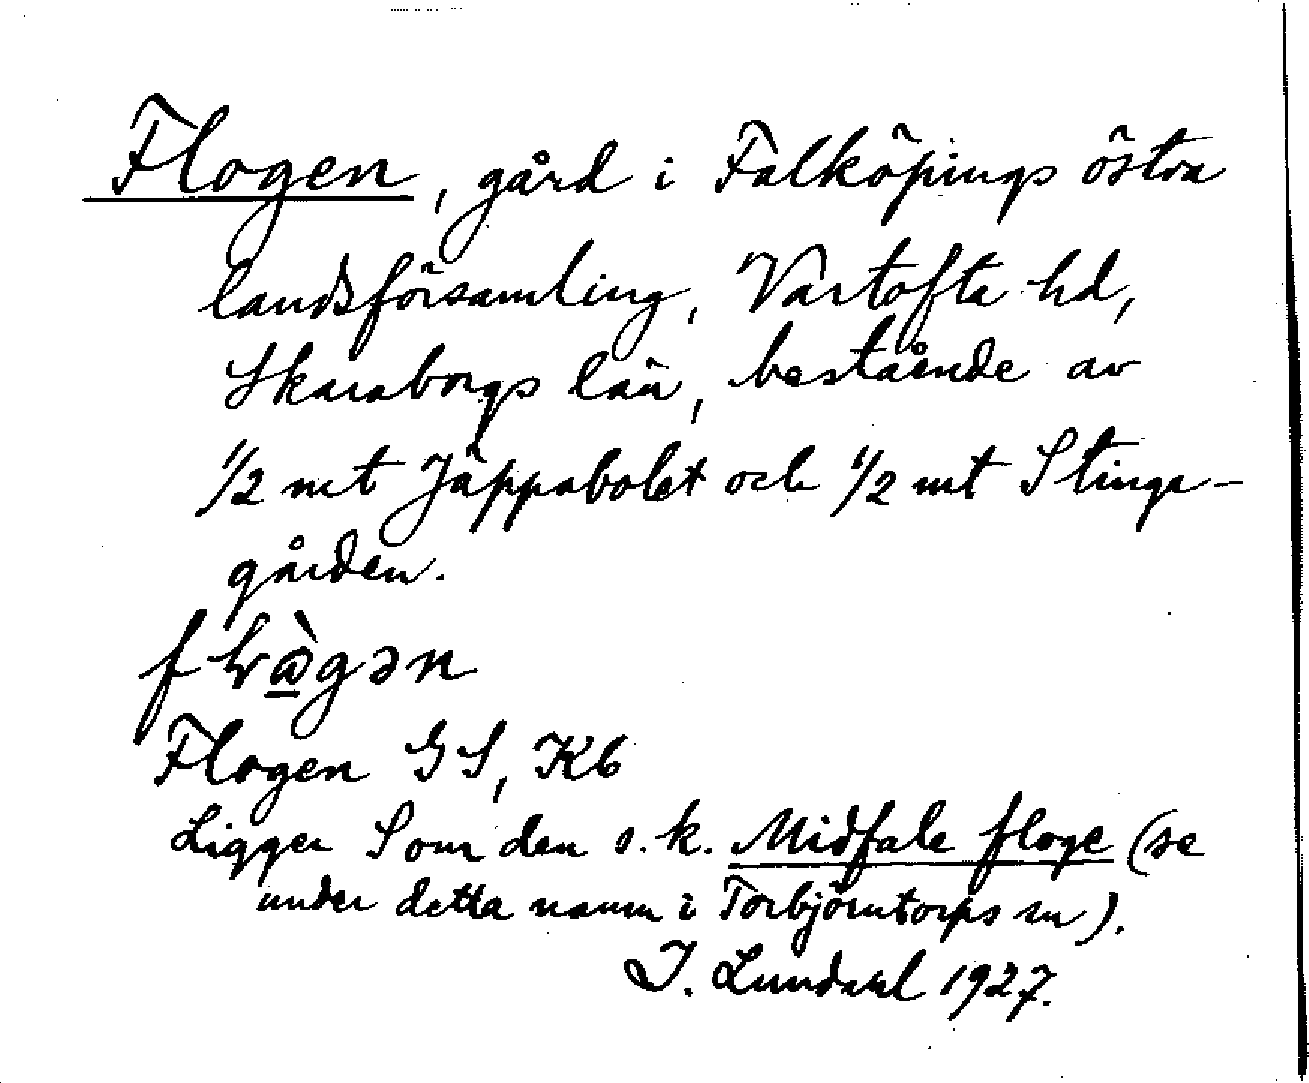 Flogen, gård i Falköpings östra
landsförsamling, Vartofta hd,
Skaraborgs län, bestående av
1/2 mt Jäppabolet och 1/2 mt Stings-
gården.
Flogen GS, Kb
Ligger S om den s.k. Midfale floge (se
under detta namn i Torbjörntorps sn).
I. Lundahl 1927.